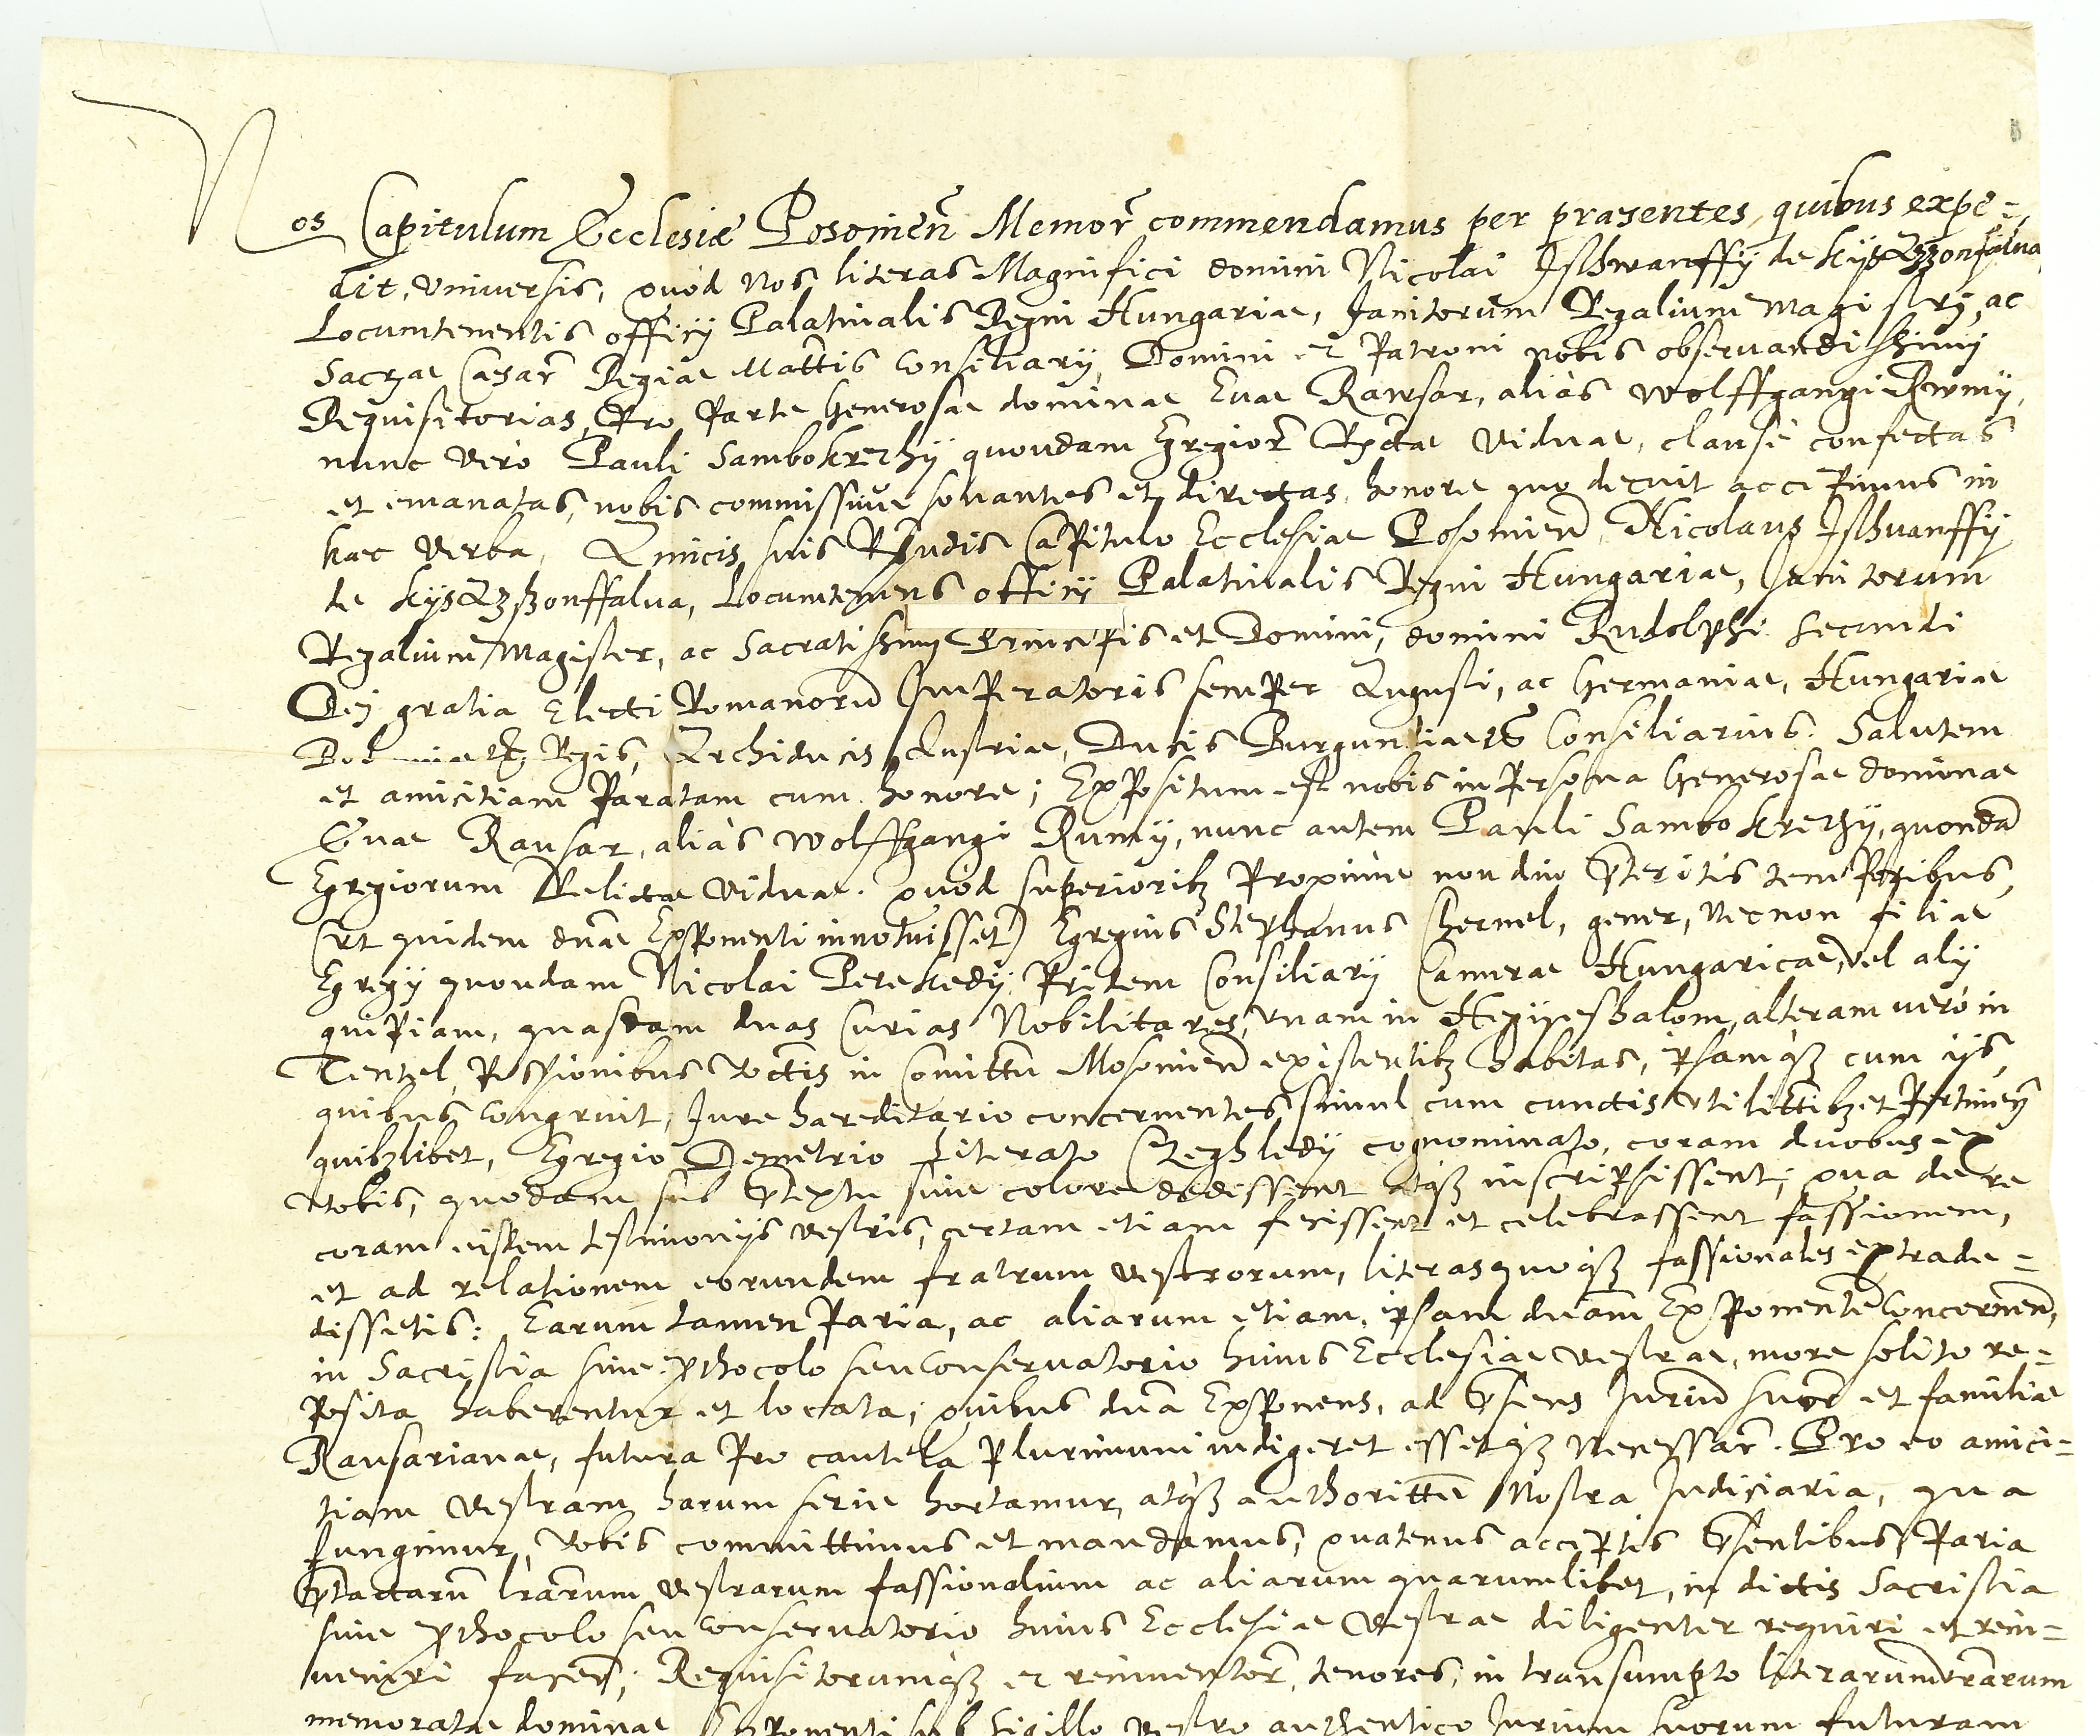 Nos Capitulum Ecclesiæ Posonien̄ Memor̄ commendamus per præsentes, quibus expe=
dit, vniuersis, quòd nos literas Magnifici domini Nicolai Jsthwanffÿ de KÿsAzzonfalua
Locumtenentis officÿ Palatinalis Regni Hungariae, Janitorum Regalium Magistrj, ac
Sacrae Caesar̄ Regiae Mattis Consiliarÿ, Domini et Patroni nobis obseruandissimj
Requisitorias, Pro Parte Generosae dominae Euae Rawsar, aliàs Wolffgangi Rwmÿ,
nunc verò Pauli Sambokrethÿ quondam Egregior̄ Rctae Viduae, clausè confectas
et emanatas, nobis commissiuè sonantes et directas, honore quo decuit accepimus in
haec Verba, Amicis suis Rndis Capitulo Ecclesiae Posonien̄, Nicolaus Jsthuanffÿ
de KÿsAzßonffalua, Locumtenens officÿ Palatinalis Regni Hungariae, Janitorum
Regalium Magister, ac Sacratissimj Principis et Domini, domini Rudolphi Secundi
Dej gratia Electi Romanorū Imperatoris semper Augusti, ac Germaniae, Hungariae
Regis, Archiducis Austriae, Ducis Burgundiae Consiliarius. Salutem
et amicitiam Paratam cum honore; Expositum est nobis in Persona Generosae dominae
Euae Rausar, aliàs Wolffgangi Rumÿ, nunc autem Pauli Sambokrethÿ, quondā
Egregiorum Relictae Viduae. Quòd superioribȝ Proximè non diu p̄teritis temporibus,
(vt quidem dnae Exponenti innotuisset) Egregius Stephanus Chernel, gener, necnon filiae
Egregÿ quondam Nicolai Perekedÿ Pridem Consiliarÿ Camerae Hungaricae, vel alÿ
quipiam, quasdam duas Curias Nobilitares, vnam in Hegÿeshalom, alteram verò in
Tentel, Possionibus Votis in Comittu Mosonien̄ existentibȝ habitas, ipsamqȝ cum ijs,
quibus congruit, Jure haereditario concernentes simul cum cunctis vtilittibȝ et Pertinen̄
quibȝlibet, Egregio Demetrio Literato Czeghledÿ cognominato, coram duobus ex
Vobis, quodam sub p̄textu siue colore dedissent atqȝ inscripsissent; Qua de re
coram eisdem testimonijs vestris, certam etiam fecissent et celebrassent fassionem,
et ad relationem eorundem fratrum vestrorum, literas quoqȝ fassionales extrade=
dissetis: Earum tamen Paria, ac aliarum etiam, ipsam dnam Exponentē Concernen̄,
in Sacristia siue Prothocolo seu Conseruatorio huius Ecclesiae vestrae, more solito re=
Posita haberentur et locata; quibus dna Exponens, ad p̄sens Juriū suor̄ et familiae
Rausarianae, futura Pro cautela Plurimum indigeret essetqȝ Necessar̄. Pro eo amici=
tiam vestram harum serie hortamur, atqȝ authorittē Nostra Judiciaria, qua
fungimur, Vobis committimus et mandamus, quatenus acceptis p̄sentibus, Paria
p̄tactarū lrarum vestrarum fassionalium ac aliarum quarumlibet, in dictis Sacristia
siue Prothocolo seu Conseruatorio huius Ecclesiae Vestrae diligenter requiri et rein=
ueniri facien̄; Requisitorumqȝ et reinuentor̄, tenores, in transumpto literarum vrarum
memoratae dominae Exponenti sub Sigillo vestro authentico Jurium suorum futuram